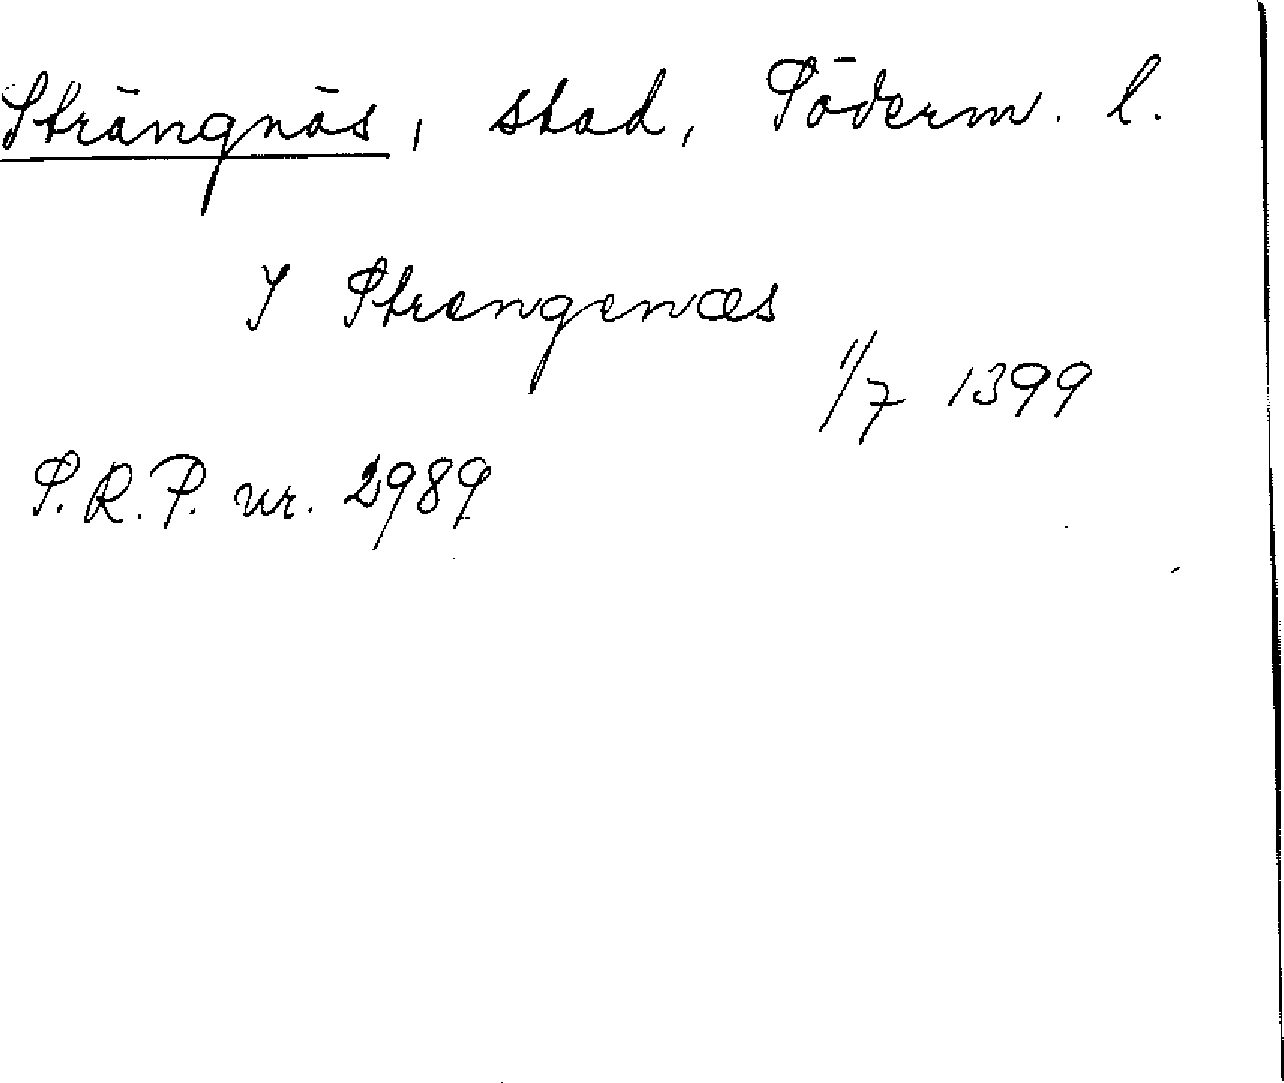 Strängnäs, stad, Söderm. l.
Y Strengenæs
11/7 1399
S.R.P. nr. 2989